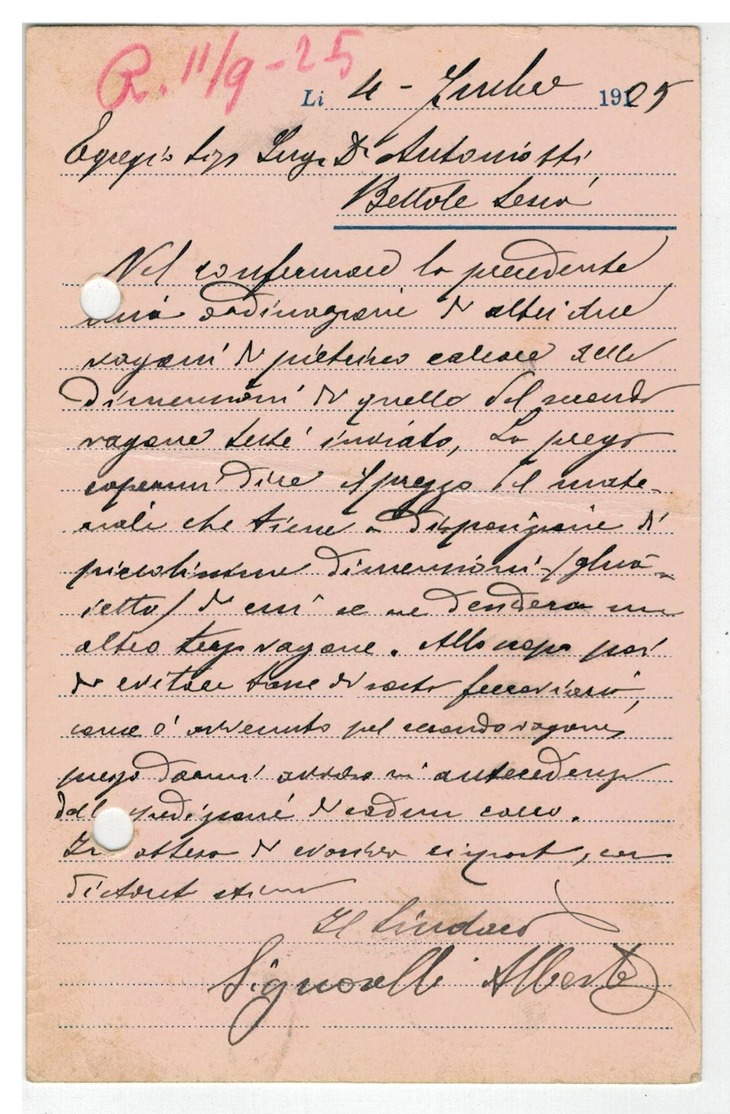 R. 11/9-25
Li 4 - 1925
Egregio Sigr Ing. Dr Antoniotti
Bettole Sesia
Nel confermare la precedente
mia ordinazione di altri due
vagoni di pietrisco calcare delle
dimensioni di quello del secondo
vagone testé inviato, La prego
sapermi dire il prezzo del mate-
riale che tiene a disposizione di
piccolissime dimensioni (ghia-
ietto) di cui se ne desidera un
altro vagone. Allo scopo poi
di evitare tasse di sosta ferroviaria,
come è avvenuto pel secondo vagone,
prego darmi avviso in antecedenza
della spedizione di cadun carro.
In attesa di riscont, con
distint stima
Il Sindaco
Signorelli Alberto